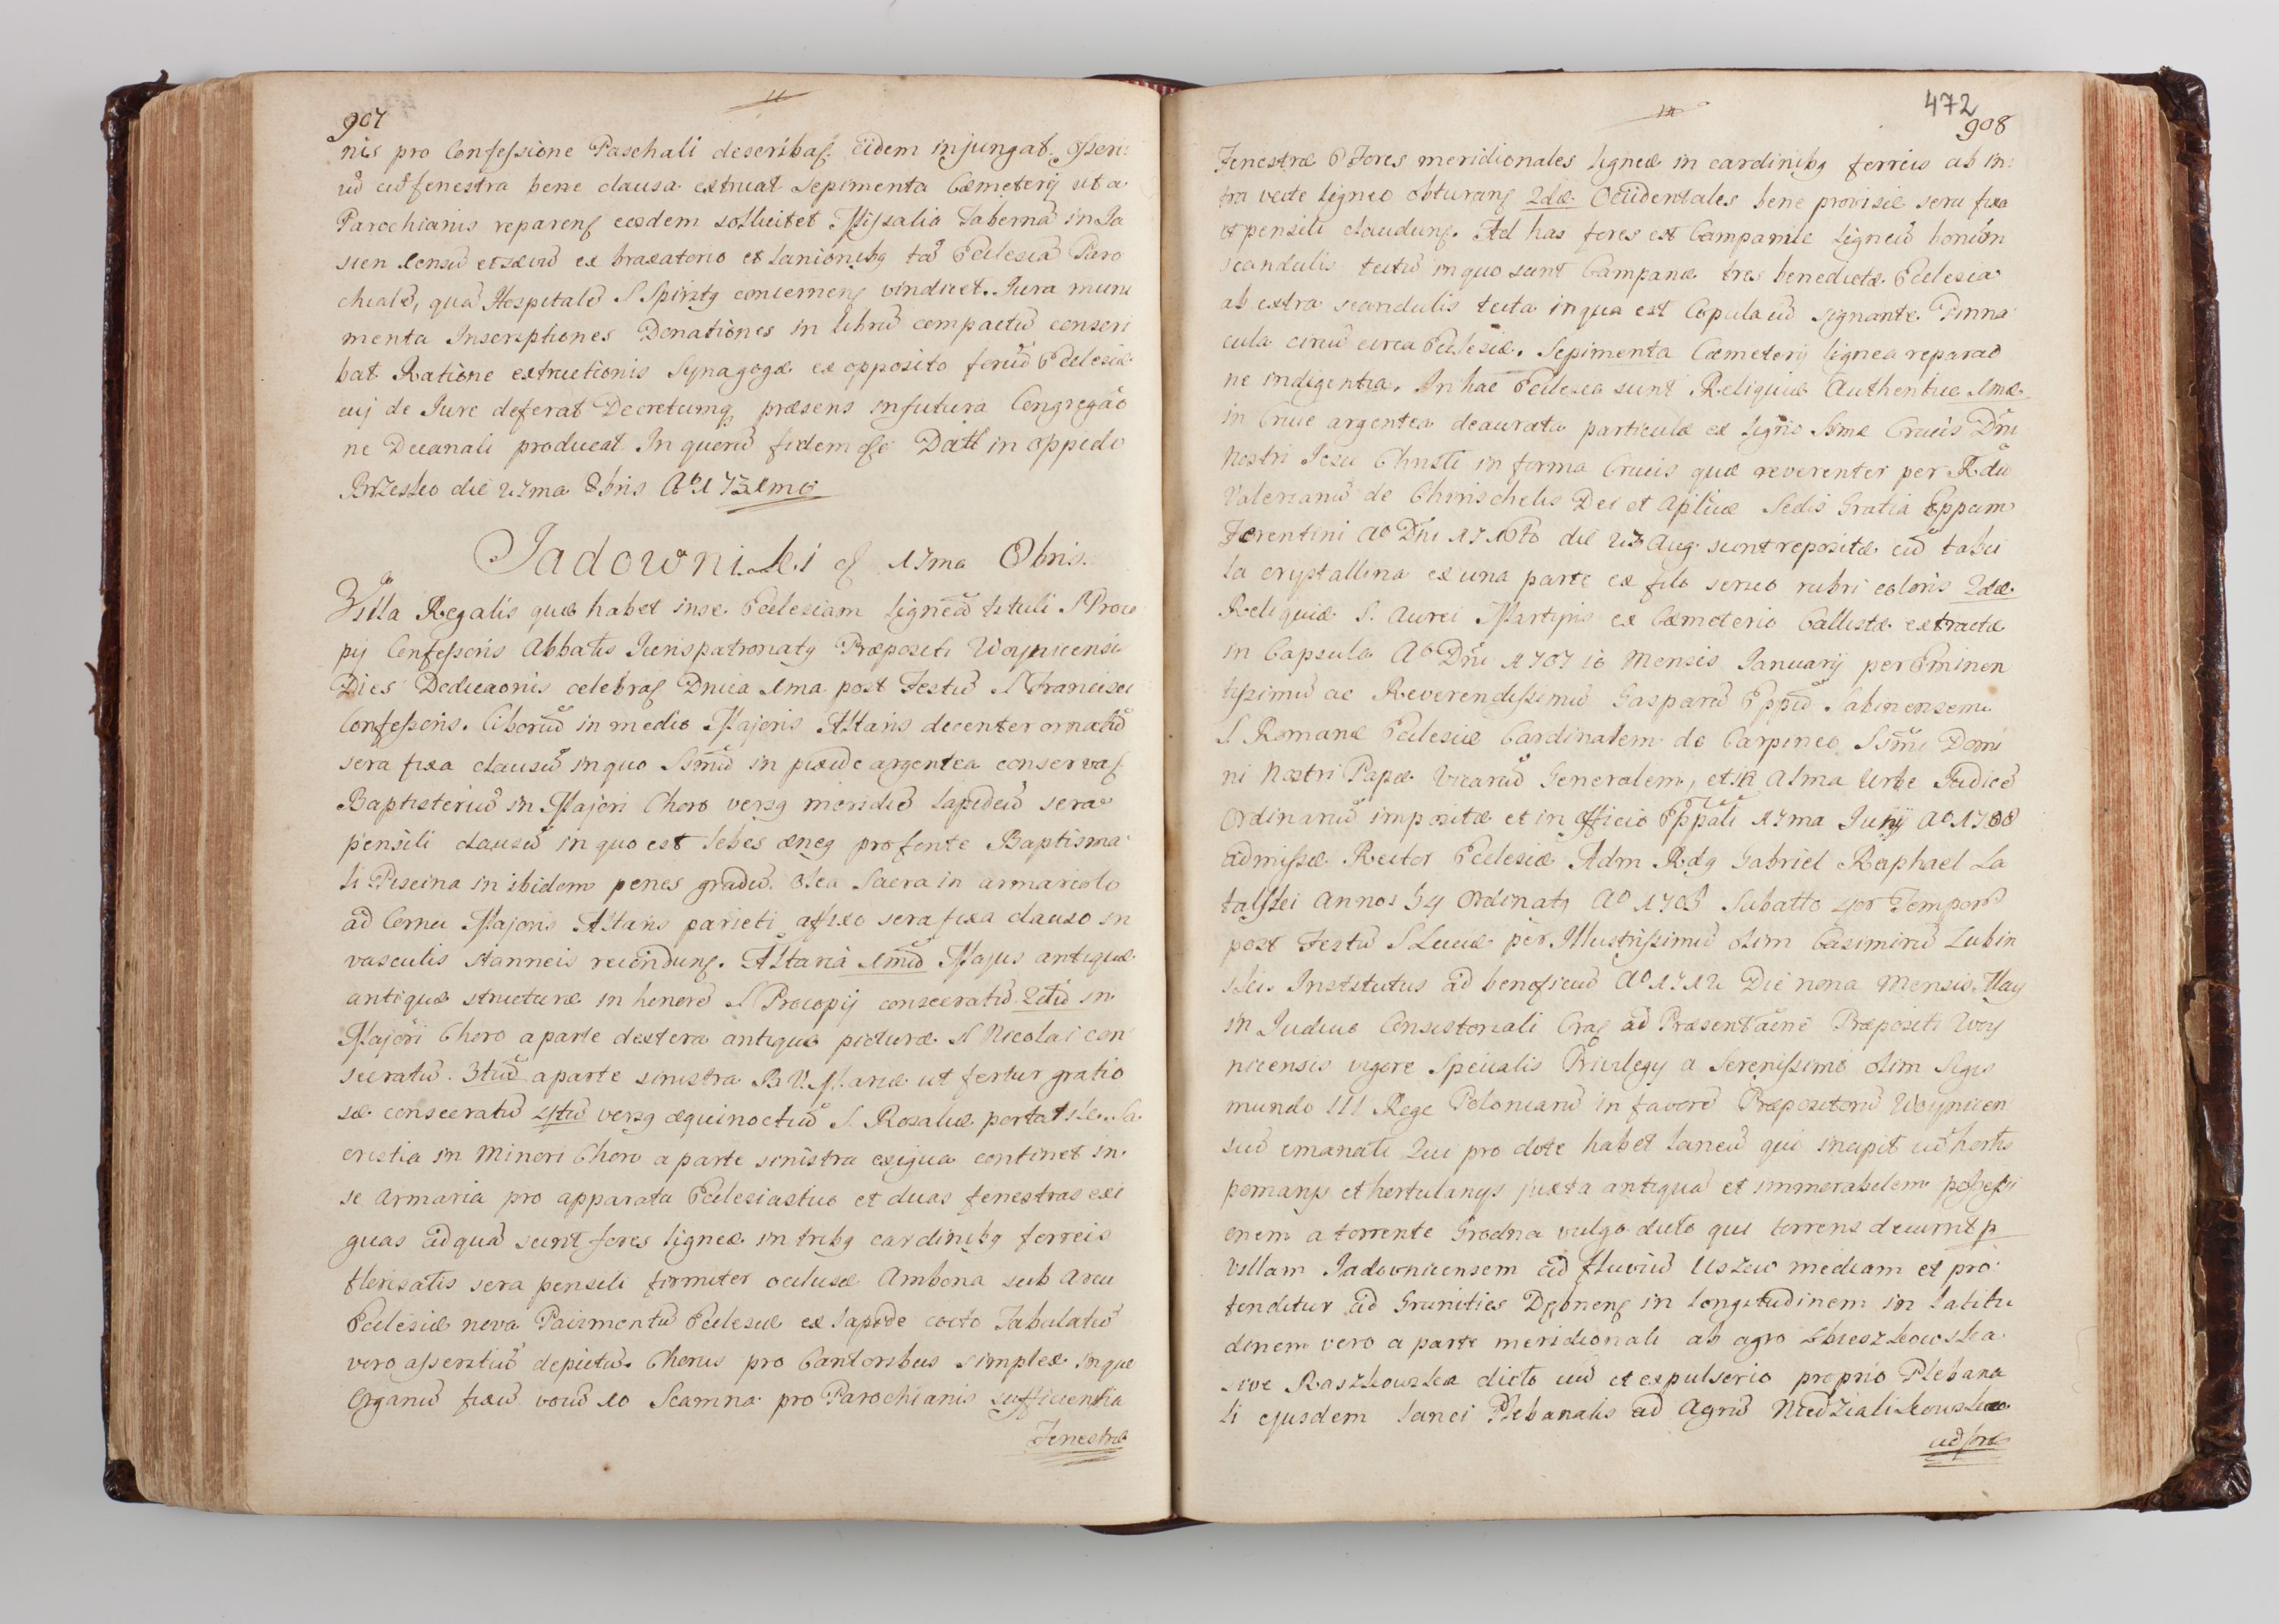 11
907
nis pro Confessione Paschali describat. Eidem injungat. Osseri:
ū cū fenestra bene clausa extruat Sepimenta Cæmeterij ut a
Parochianis reparent eosdem sollicitet Missalia Tabernā in Ja
sien Censū et sævū ex braxatorio et Lanionibg tā Ecclesiā Paro
chialē, quā Hospitale S Spiritg concernent vindicet. Jura muni
menta Inscriptiones Donationes in librū compactū conscri
bat Ratione extructionis Synagogæ ex opposito ferūd Ecclesiæ
cuj de Jure deferat Decretumq præsens in futura Congregāo
ne Decanali producat In quorū fidem Datt in oppido
Brzesko die 27ma 8bris Ao 173
Jadowniki 17ma 8bris.
Villa Regalis quæ habet in se Ecclesiam ligneā tituli S Proco
pij Confessoris Abbatis Jurispatronatg Præpositi Woynicensis
Dies Dedicaonis celebrat Dnica 1ma post Festū S Francisci
Confessoris. Ciboriū in medio Majoris Altaris decenter ornatū
sera fixa clausū in quo Ssmū in pixide argentea conservat
Baptisteriū in Majori Choro versg meridiē lapideū sera
pensili clausū in quo est lebes æneg pro fonte Baptisma
li Piscina in ibidem penes gradū. Olea Sacra in armariolo
ad Cornu Majoris Altaris parieti affixo sera fixa clauso in
vasculis stanneis recōndunt. Altaria 1mū Majus antiquæ
antiquæ structuræ in honorē S Procopij consecratū 2dū in
Majori Choro a parte dextera antiquæ picturæ S Nicolai con
secratū. 3tiū a parte sinistra B V. Mariæ ut fertur gratio
sæ consecratū 4tū versg æquinoctiū S. Rosaliæ portatile. Sa
cristia in Minori Choro a parte sinistra exigua continet in
se Armaria pro apparatu Ecclesiastico et duas fenestras exi
guas ad quā sunt fores ligneæ in tribg cardinibg ferreis
sera pensili firmiter occlusæ Ambona sub Arcu
Ecclesiæ nova Pavimentū Ecclesiæ ex lapide cocto Tabulatū
vero asseratiū depictū. Chorus pro Cantoribus simplex in quo
Organū fixū vocū 10 Scamna pro Parochianis sufficientia
Fenestræ
472
908
Fenestræ 6 Fores meridionales ligneæ in cardinibg ferreis ab in:
tra vecte ligneo obturant 2dæ Occidentales bene provisæ sera fixa
et pensili claudunt. Ad has fores est Campanile ligneū
scandulis tectū in quo sunt Campanæ tres benedictæ. Ecclesia
ab extra scandulis tecta in qua est Copula cū signante. Pinna
cula circū circa Ecclesiæ. Sepimenta Cæmeterij lignea reparāo
ne indigentia. In hac Ecclesia sunt Reliquiæ Authenticæ 1mæ
in Cruce argentea deaurata particulæ ex ligno Ssmæ Crucis Dni
Nostri Jesu Christi in forma Crucis quæ reverenter per Rdū
Valerianū de Chirichelis Dei et Aplicæ Sedis Gratia Eppum
Ferentini ao Dni 17 die 23 Aug. sunt repositæ cū tabu
la crystallina ex una parte ex filo serico rubri coloris 2dæ
Reliquiæ S. Aurei Martyris ex Cæmeterio Callistæ extractæ
in Capsula Ao Dni 1707 Mensis Januarij per Eminen
tissimū ac Reverendissimū Gasparū Eppū Sabinensem
S Romanæ Ecclesiæ Cardinalem de Carpineo Ssmi Domi
ni Nostri Papæ Vicariū Generalem, et in Alma Urbe Judicē
Ordinariū impositæ et in Officio Eppali 17ma Junij Ao 1708
admissæ Rector Ecclesiæ Adm Rdg Gabriel Raphael La
talski Annos 54 Ordinatg Ao 1705 Sabatto 4or Temporū
post Festū S Luciæ per Illustrissimū olim Casimirū Lubin
ski. Institutus ad beneficiū Ao 1712 Die nona Mensis May
in Judicio Consistoriali Crac ad Præsentāone Præpositi Woy
nicensis vigore Specialis Privilegij a Serenissimo olim Sigis
mundo III Rege Poloniarū in favorē Præpositorū Woynicen
siū emanati Qui pro dote habet laneū qui incipit cū hortis
pomarijs et hortulanijs juxta antiquā et immorabilem possessi
onem a torrente Grodna vulgo dicto qui torrens decurrit p
villam Jadovnicensem ad fluviū Uszew mediam et pro
tenditur ad Granities Dębnent in longitudinem in latitu
dinem vero a parte meridionali ab agro
sive Raszkowska dicto cū et expulsorio proprio Plebana
li ejusdem lanei Plebanalis ad Agrū